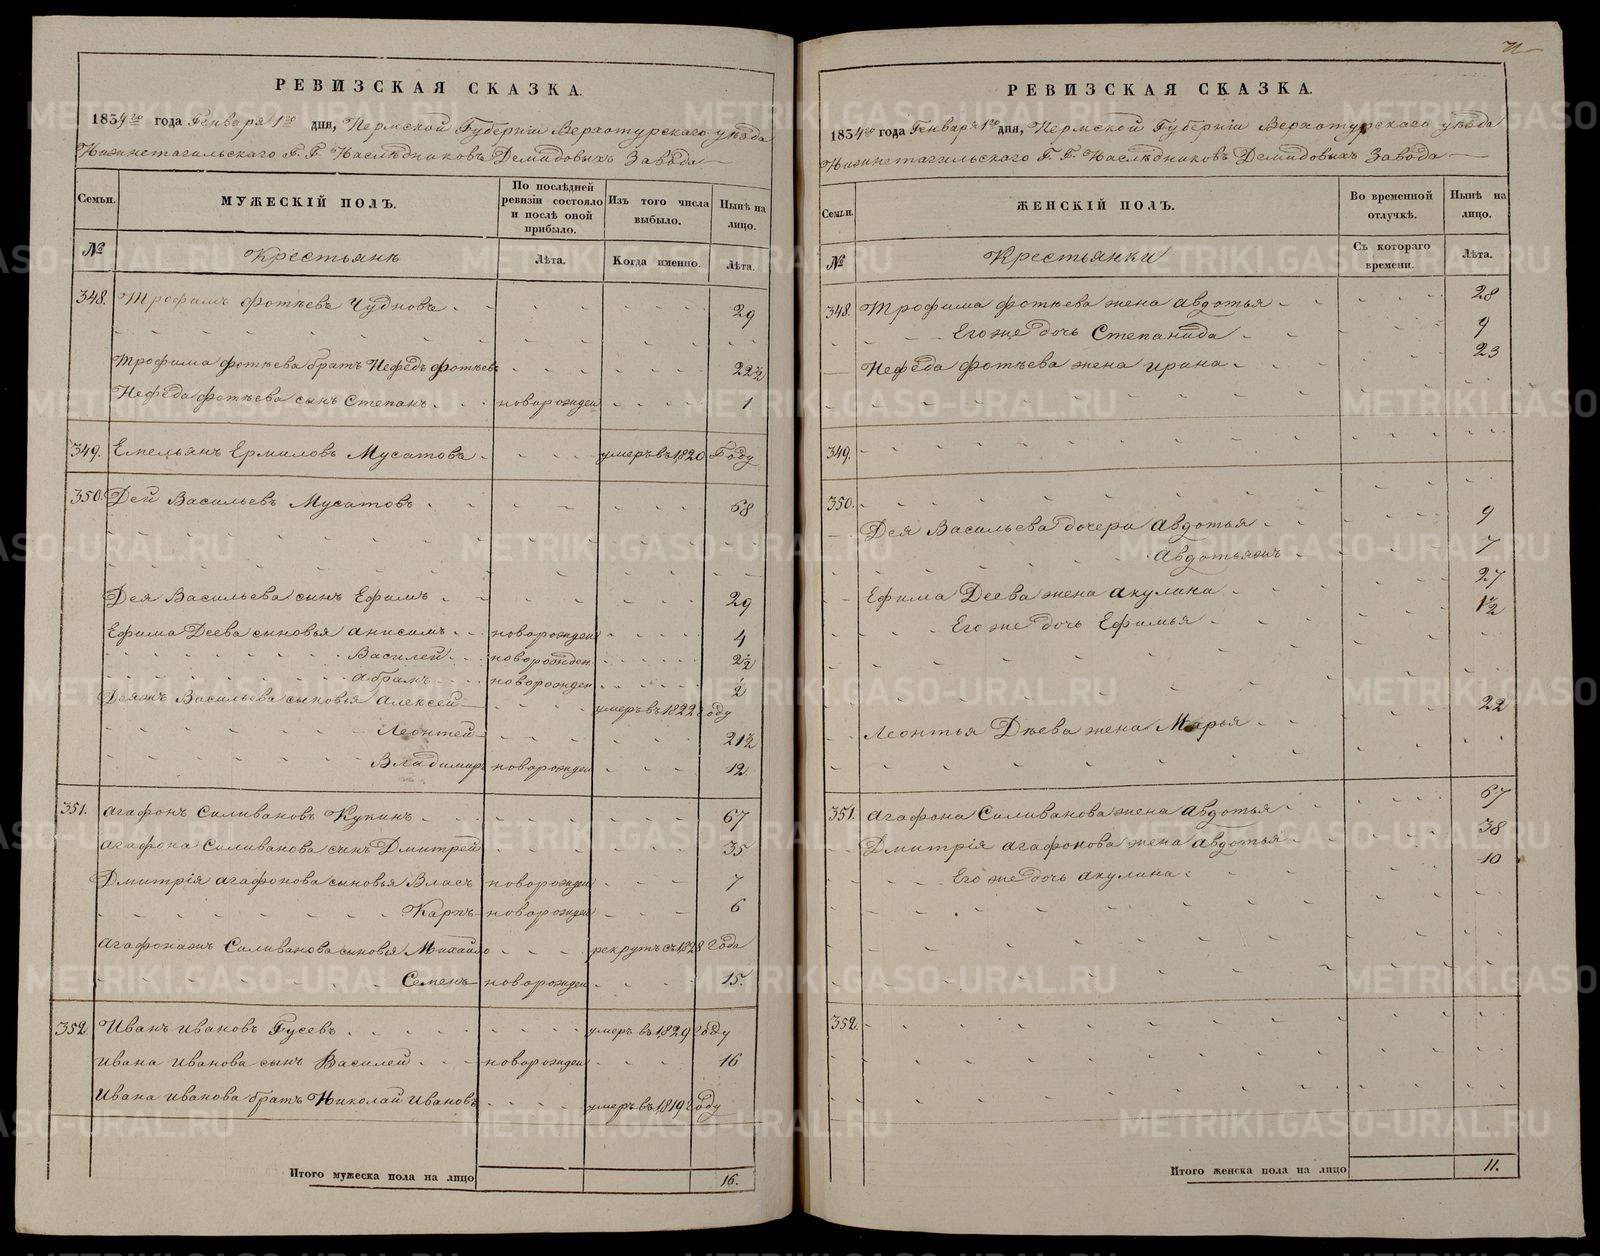 РЕВИЗСКАЯ СКАЗКА.
1834го года Генваря 1го дня, Пермской Губернiи Верхотурскаго уѣзда
Нижнетагильскаго Г. Г. Наслѣдниковъ Демидовыхъ Завода
Семьи. МУЖЕСКIЙ ПОЛЪ. По послѣдней ревизiи состояло и послѣ оной прибыло. Изъ того числа выбыло. Нынѣ на лицо.
№ Крестьянѣ Лѣта. Когда именно. Лѣта.
348. Трофимъ Фотѣевъ Чудновъ 29
Трофима Фотѣева братъ Нефедъ Фотѣевъ 22½
Нефеда Фотѣева сынъ Степанъ новорожден 1
349. Емельянъ Ермиловъ Мусатовъ умеръ въ 1820 Году
350. Дей Васильевъ Мусатовъ 68
Дея Васильева сынъ Ефимъ 29
Ефима Деева сыновья Анисимъ новорожден 4
Василей новорожден 2½
Абрамъ новорожден ½
Деяжъ Васильева сыновья Алексей умеръ въ 1822 Году
Леонтей 21½
Владимиръ новорожден 12
351. Агафонъ Силивановъ Кукинъ 67
Агафона Силиванова сынъ Дмитрей 35
Дмитрiя Агафонова сыновья Власъ новорожден 7
Карпъ новорожден 6
Агафонажъ Силиванова сыновья Михайло рекрутъ съ 1828 Года
Семенъ новорожден 15.
352. Иванъ Ивановъ Гусевъ умеръ въ 1829 Году
Ивана Иванова сынъ Василей новорожден 16
Ивана Иванова братъ Николай Ивановъ умеръ въ 1819 Году
Итого мужеска пола на лицо 16.
РЕВИЗСКАЯ СКАЗКА.
1834го года Генваря 1го дня, Пермской Губернiи Верхотурскаго уѣзда
Нижнетагильскаго Г. Г. Наслѣдниковъ Демидовыхъ Завода
Семьи. ЖЕНСКIЙ ПОЛЪ. Во временной отлучкѣ. Нынѣ на лицо.
№ Крестьянки Съ котораго времени. Лѣта.
348. Трофима Фотѣева жена Авдотья 28
Его же дочь Степанида 9
Нефеда Фотѣева жена Ирина 23
349.
350.
Дея Васильева дочери Авдотья 9
Авдотьяжъ 7
Ефима Деева жена Акулина 27
Его же дочь Ефимья 1½
Леонтья Дѣева жена Марья 22
351. Агафона Силиванова жена Авдотья 67
Дмитрiя Агафонова жена Авдотья 38
Его же дочь Акулина 10
352.
Итого женска пола на лицо 11.
METRIKI.GASO-URAL.RU